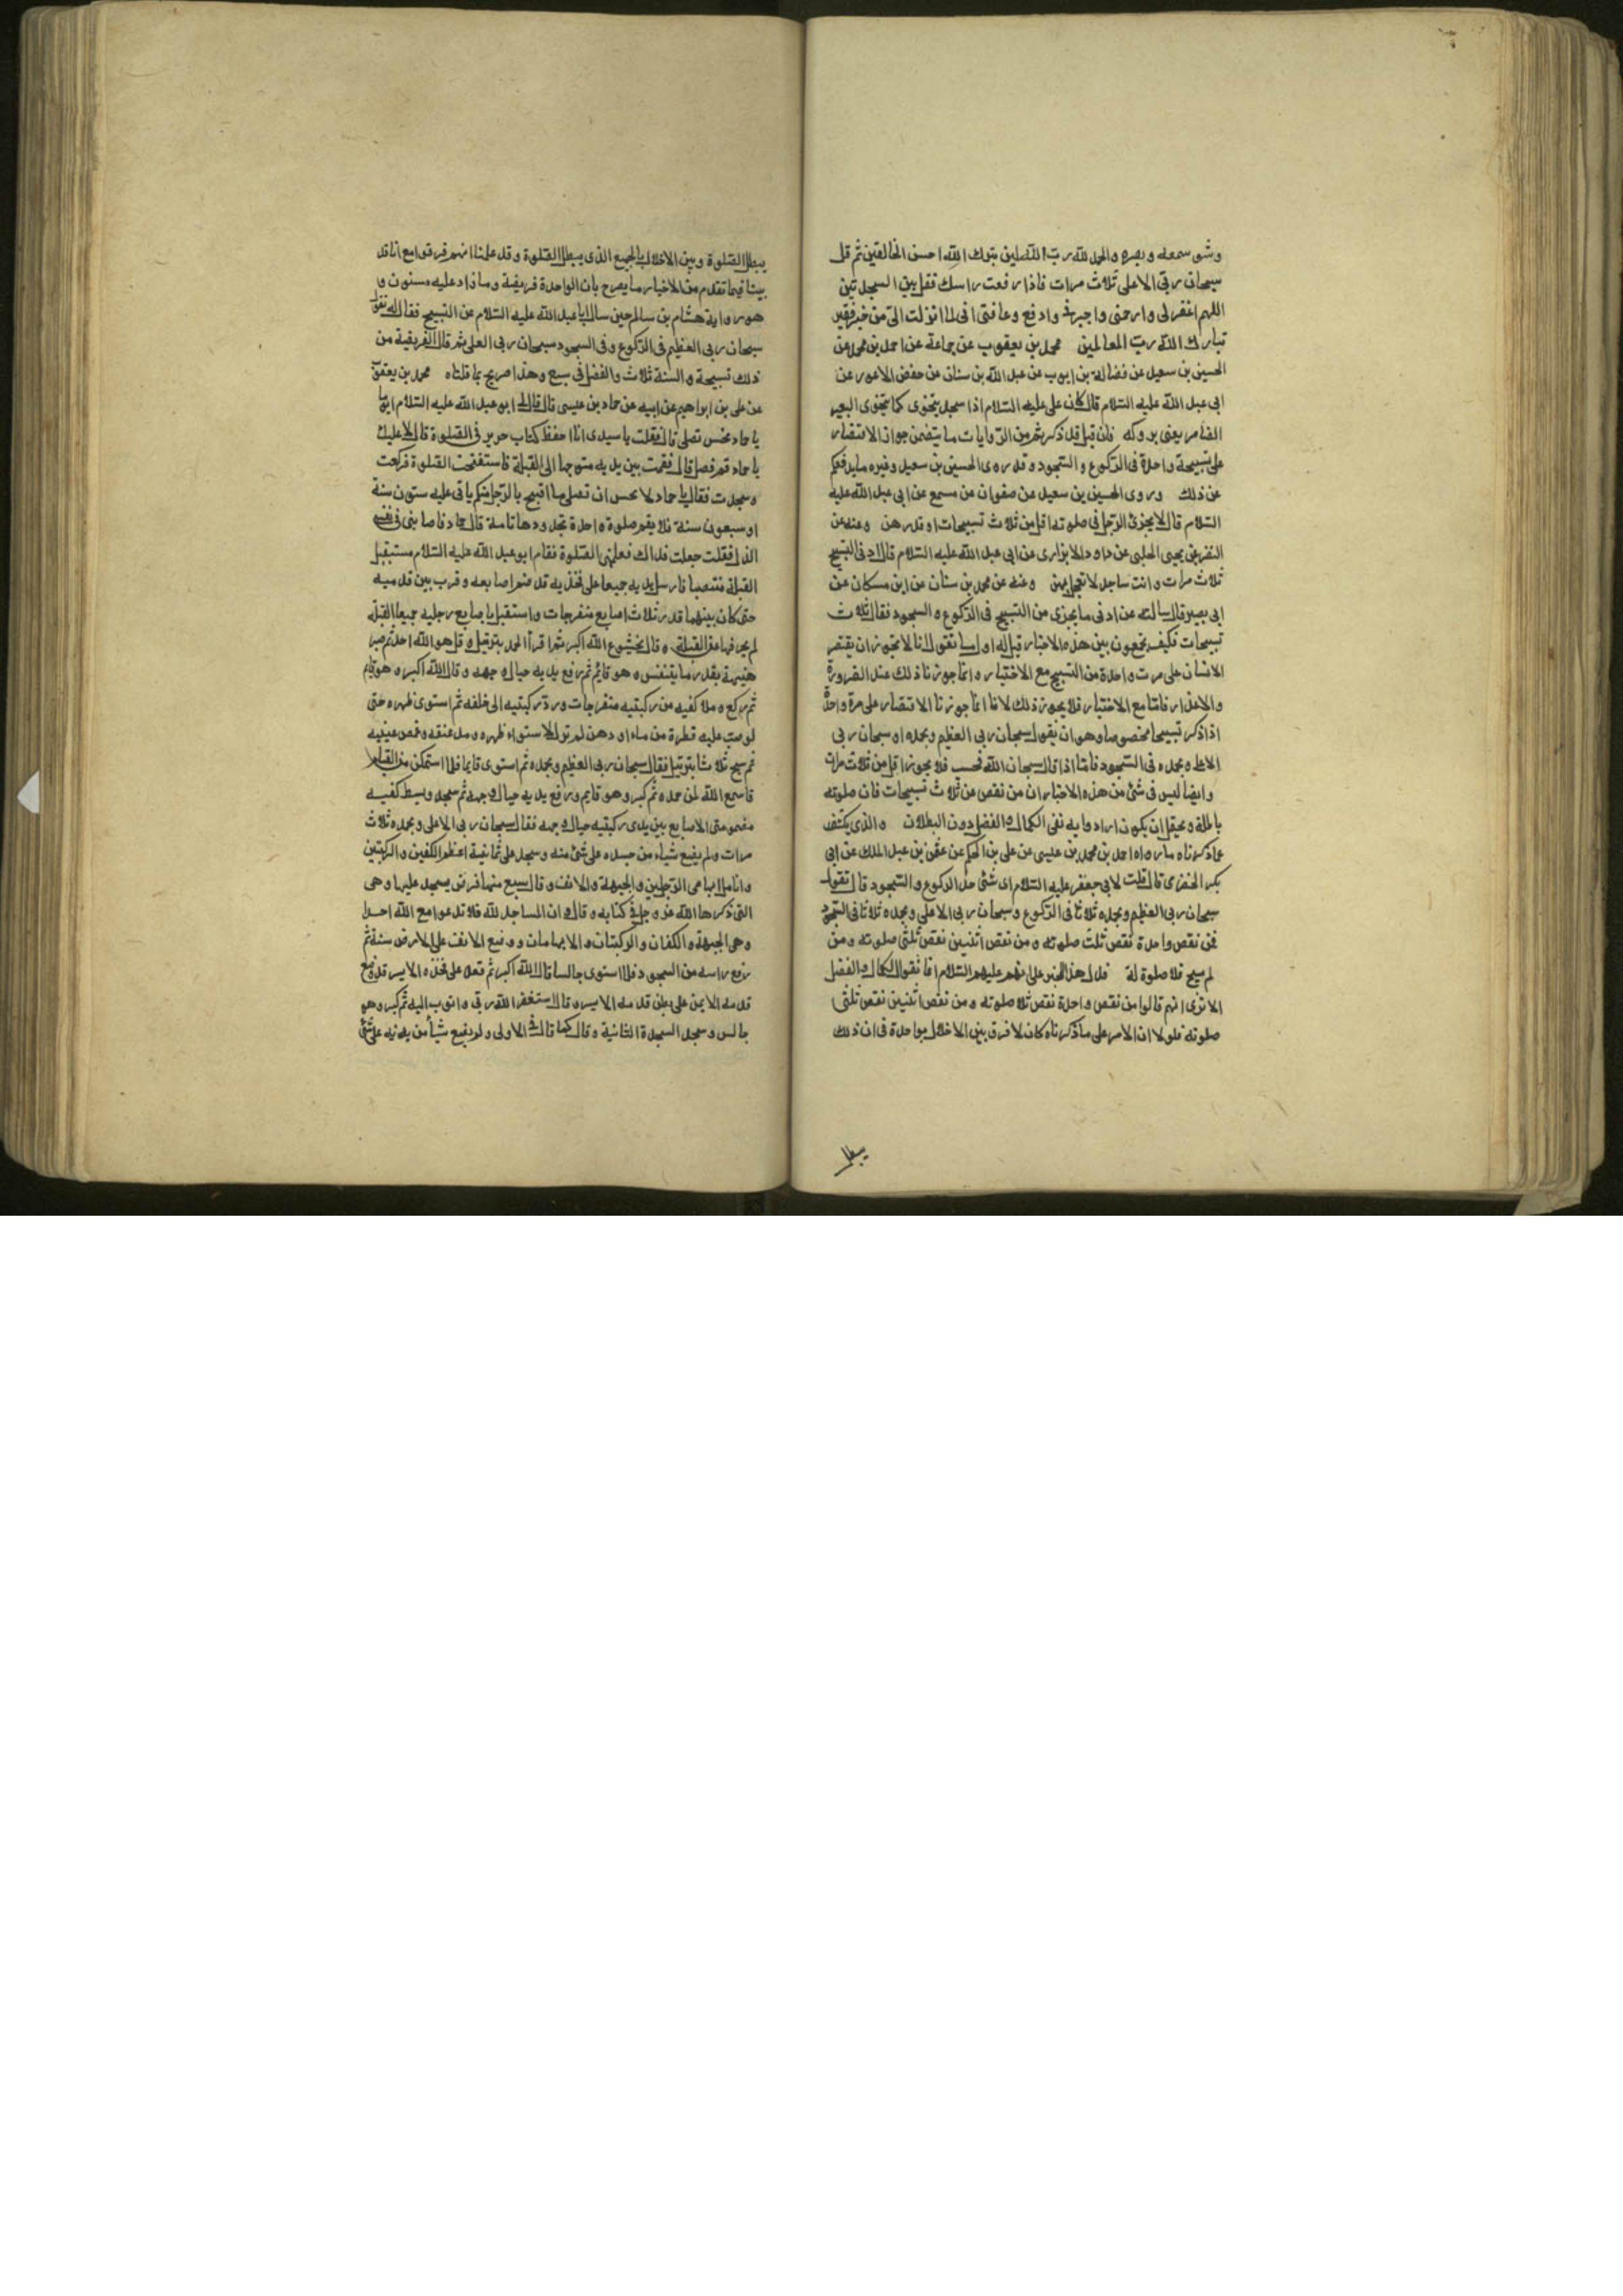 وشق سمعه وبصره والحمد لله رب العالمين تبرك الله احسن الخالقين ثم قل
سبحان ربى الاعلى ثلاث مرات فاذا رفعت راسك فقل بين السجدتين
اللهم اغفرلى وارحمنى واجبرنى وادفع وعافنى انى لما انزلت الى من خير فقير
تبارك الله رب العالمين محمد بن يعقوب عن جماعة عن احمد بن محمد عن
الحسين بن سعيد عن فضالة بن ايوب عن عبد الله بن سنان عن حفص الاعور عن
ابى عبد الله عليه السلام قال كان على عليه السلام اذا سجد يتخوى كما يتخوى البعير
الضامر يعنى بروكه فان قيل قد ذكرتم من الروايات ما يتضمن جواز الاقتصار
على تسبيحة واحدة فى الركوع والسجود وقد روى الحسين بن سعيد وغيره ما يدفعكم
عن ذلك وروى الحسين بن سعيد عن صفوان عن مسمع عن ابى عبد الله عليه
السلام قال لا يجزئ الرجل فى صلوته اقل من ثلاث تسبيحات او قدرهن وعنه عن
النضر عن يحيى الحلبى عن داود الابزارى عن ابى عبد الله عليه السلام قال ادنى التسبيح
ثلاث مرات وانت ساجد لا تعجل بهن وعنه عن محمد بن سنان عن ابن مسكان عن
ابى بصير قال سالته عن ادنى ما يجزى من التسبيح فى الركوع والسجود فقال ثلاث
تسبيحات فكيف تجمعون بين هذه الاخبار قيل له اول ما نقول اننا لا نجوز ان يقتصر
الانسان على مرت واحدة من التسبيح مع الاختيار وانما جوزنا ذلك عند الضرورة
والاعذار فاما مع الاختيار فلا يجوز ذلك لانا انما جوزنا الاقتصار على مرة واحدة
اذا ذكر تسبيحا مخصوصا وهو ان يقول سبحان ربى العظيم وبحمده او سبحان ربى
الاعلى وبحمده فى السجود فاما اذا قال سبحان الله فحسب فلا يجوز اقل من ثلاث مرات
وايضا ليس فى شئ من هذه الاخبار ان من نقص عن ثلاث تسبيحات فان صلوته
باطلة ويحتمل ان يكون ارادوا به نفى الكمال والفضل دون البطلان والذى يكشف
عما ذكرناه ما رواه احمد بن محمد بن عيسى عن على بن الحكم عن عثمن بن عبد الملك عن ابى
بكر الحضرمى قال قلت لابى جعفر عليه السلام اى شئ حد الركوع والسجود قال تقول
سبحان ربى العظيم وبحمده ثلاثا فى الركوع وسبحان ربى الاعلى وبحمده ثلاثا فى السجود
فمن نقص واحدة نقص ثلث صلوته ومن نقص اثنين نقص ثلثى صلوته ومن
لم يسبح فلا صلوة له فدل هذا الخبر على انهم عليهم السلام انما نفوا الكمال والفضل
الا ترى انهم قالوا من نقص واحدة نقص ثلث صلوته ومن نقص اثنين نقص ثلثى
صلوته فلولا ان الامر على ما ذكرناه كان لا فرق بين الاخلال بواحدة فى ان ذلك
يبطل
يبطل الصلوة وبين الاخلال بالجميع الذى يبطل الصلوة وقد علمنا انهم فرقوا مع انا قد
بينا فيما تقدم من الاخبار ما يصرح بان الواحدة فريضة وما زاد عليه مسنون و
هو رواية هشام بن سالم حين سال ابا عبد الله عليه السلام عن التسبيح فقال له تقول
سبحان ربى العظيم فى الركوع وفى السجود سبحان ربى العلى ثم قال الفريضة من
ذلك تسبيحة والسنة ثلاث والفضل فى سبع وهذا صريح بما قلناه محمد بن يعقوب
عن على بن ابراهيم عن ابيه عن حماد بن عيسى قال قال لى ابو عبد الله عليه السلام يوما
يا حماد تحسن تصلى قال فقلت يا سيدى انا احفظ كتاب حريز فى الصلوة قال لا عليك
يا حماد قم فصل قال فقمت بين يديه متوجها الى القبلة فاستفتحت الصلوة فركعت
وسجدت فقال يا حماد لا تحسن ان تصلى ما اقبح بالرجل منكم ياتى عليه ستون سنة
او سبعون سنة فلا يقيم صلوة واحدة بحدودها تامة قال حماد فاصابنى فى نفسى
الذل فقلت جعلت فداك فعلمنى الصلوة فقام ابو عبد الله عليه السلام مستقبل
القبلة منتصبا فارسل يديه جميعا على فخذيه قد ضم اصابعه وقرب بين قدميه
حتى كان بينهما قدر ثلاث اصابع منفرجات واستقبل باصابع رجليه جميعا القبلة
لم يحرفهما عن القبلة وقال بخشوع الله اكبر ثم قرأ الحمد بترتيل وقل هو الله احد ثم صبر
هنيهة بقدر ما يتنفس وهو قائم ثم رفع يديه حيال وجهه وقال الله اكبر وهو قايم
ثم ركع وملا كفيه من ركبتيه منفرجات ورد ركبتيه الى خلفه ثم استوى ظهره حتى
لو صب عليه قطرة من ماء او دهن لم تزل لاستواء ظهره ومد عنقه وغمض عينيه
ثم سبح ثلاثا بترتيل فقال سبحان ربى العظيم وبحمده ثم استوى قايما فلما استمكن من القيام
قال سمع الله لمن حمده ثم كبر وهو قايم ورفع يديه حيال وجهه ثم سجد وبسط كفيه
مضمومتى الاصابع بين يدى ركبتيه حيال وجهه فقال سبحان ربى الاعلى وبحمده ثلاث
مرات ولم يضع شياء من جسده على شئ منه وسجد على ثمانية اعظم الكفين والركبتين
وانامل ابهامى الرجلين والجبهة والانف وقال سبع منها فرض يسجد عليها وهى
التى ذكرها الله عز وجل فى كتابه وقال وان المساجد لله فلا تدعوا مع الله احدا
وهى الجبهة والكفان والركبتان والابهامان ووضع الانف على الارض سنة ثم
رفع راسه من السجود فلما استوى جالسا قال الله اكبر ثم قعد على فخذه الايسر قد وضع
قدمه الايمن على بطن قدمه الايسر وقال استغفر الله ربى واتوب اليه ثم كبر وهو
جالس وسجد السجدة الثانية وقال كما قال فى الاولى ولم يضع شيأ من يديه على شئ